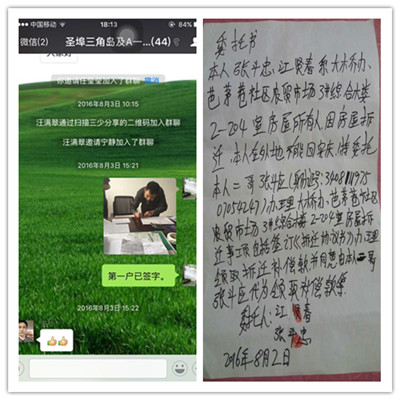 中国移动
18:13
84%
微信(2)
圣埠三角岛及A一...(44)
2016年8月3日 10:15
汪满翠通过扫描三少分享的二维码加入群聊
汪满翠邀请宁静加入了群聊
2016年8月3日 15:21
第一户已签字。
2016年8月3日 15:22
委托书
本人张斗忠、江贤春系大木乔办、
芭茅巷社区农贸市场3#综合大楼
2-204室房屋所有人,因房屋拆
迁,本人在外地不能回安庆,特委托
本人二哥张斗应(身份证:
)办理大木乔办、芭茅巷社区
农贸市场3#综合楼2-204室房屋拆
迁事项包括签订《拆迁协议书》办理
领取拆迁补偿款并同意由本人二哥
张斗应代为领取补偿款等
委托人:江贤春
张斗忠
2016年8月2日